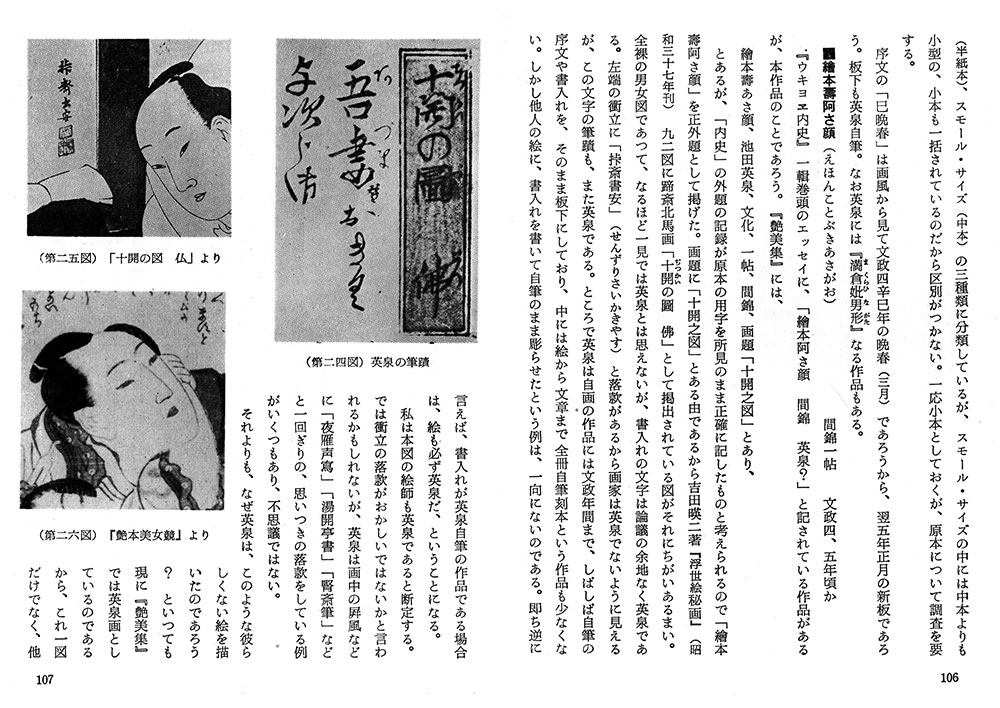 （半紙本）、スモール・サイズ（中本）の三種類に分類しているが、スモール・サイズの中には中本よりも
小型の、小本も一括されているのだから区別がつかない。一応小本としておくが、原本について調査を要
する。
序文の「巳晩春」は画風から見て文政四辛巳年の晩春（三月）であろうから、翌五年正月の新板であろ
う。板下も英泉自筆。なお英泉には『満倉妣男形』なる作品もある。
繪本壽阿さ顔（えほんことぶきあさがお）　間錦一帖　文政四、五年頃か
『ウキヨヱ内史』一輯巻頭のエッセイに、「繪本阿さ顔　間錦　英泉？」と記されている作品がある
が、本作品のことであろう。『艶美集』には、
繪本壽あさ顔、池田英泉、文化、一帖、間錦、画題「十開之図」とあり、
とあるが、「内史」の外題の記録が原本の用字を所見のまま正確に記したものと考えられるので「繪本
壽阿さ顔」を正外題として掲げた。画題に「十開之図」とある由であるから吉田暎二著『浮世絵秘画』（昭
和三十七年刊）　九二図に蹄斎北馬画「十開の圖　佛」として掲出されている図がそれにちがいあるまい。
全裸の男女図であつて、なるほど一見では英泉とは思えないが、書入れの文字は論議の余地なく英泉であ
る。左端の衝立に「挊斎書安」（せんずりさいかきやす）と落款があるから画家は英泉でないように見える
が、この文字の筆蹟も、また英泉である。ところで英泉は自画の作品には文政年間まで、しばしば自筆の
序文や書入れを、そのまま板下にしており、中には絵から文章まで全冊自筆刻本という作品も少なくな
い。しかし他人の絵に、書入れを書いて自筆のまま彫らせたという例は、一向にないのである。即ち逆に
106
十開の圖　佛
吾妻
与次
（第二四図）英泉の筆蹟
（第二五図）「十開の図　仏」より
（第二六図）『艶本美女競』より
言えば、書入れが英泉自筆の作品である場合
は、絵も必ず英泉だ、ということになる。
私は本図の絵師も英泉であると断定する。
では衝立の落款がおかしいではないかと言わ
れるかもしれないが、英泉は画中の屛風など
に「夜雁声寫」「湯開亭書」「腎斎筆」など
と一回ぎりの、思いつきの落款をしている例
がいくつもあり、不思議ではない。
それよりも、なぜ英泉は、このような彼ら
しくない絵を描
いたのであろう
？　といつても
現に『艶美集』
では英泉画とし
ているのである
から、これ一図
だけでなく、他
107